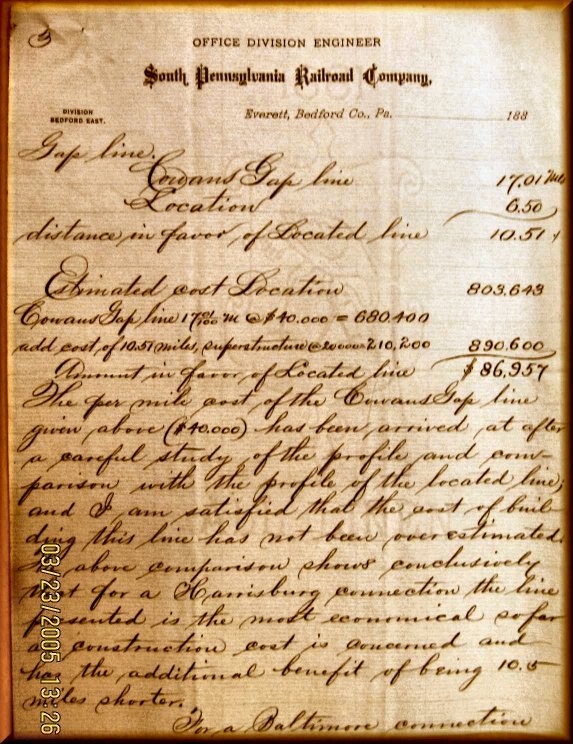 3
OFFICE DIVISION ENGINEER
South Pennsylvania Railroad Company,
DIVISION
BEDFORD EAST.
Everett, Bedford Co., Pa. 188
Gap line.
Cowans Gap line 17.01 Mls
Location 6.50
distance in favor of Located line 10.51
Estimated cost Location 803,643
Cowans Gap line 17 01/100 M @ $40.000 = 680400
add cost of 10.51 miles, superstructure @ 20000 = 210,200 890,600
Amount in favor of Located line $86,957
The per mile cost of the Cowans Gap line
given above ($40.000) has been arrived at after
a careful study of the profile and com-
parison with the profile of the located line;
and I am satisfied that the cost of buil-
ding this line has not been overestimated.
The above comparison shows conclusively
that for a Harrisburg connection the line
presented is the most economical so far
as construction cost is concerned and
has the additional benefit of being 10.5
miles shorter.
For a Baltimore connection
03/23/2005 13:26